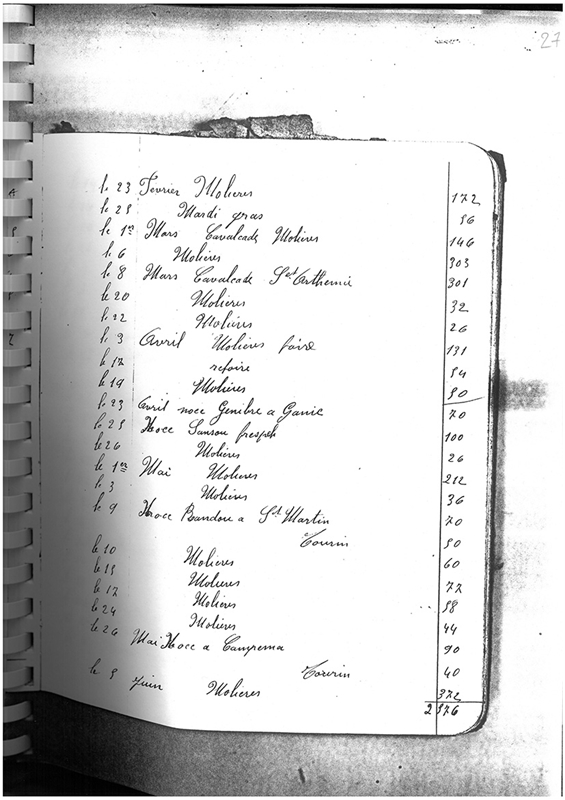 27
le 23 Fevrier Molieres 172
le 25 Mardi gras 56
le 1er Mars Cavalcade Molieres 146
le 6 Molieres 303
le 8 Mars Cavalcade Ste Arthemie 301
le 20 Molieres 32
le 22 Molieres 26
le 3 Avril Molieres foire 131
le 17 refoire 54
le 19 Molieres 50
le 23 Avril noce Genibre a Ganic 70
le 25 Noce Sansou 100
le 26 Molieres 26
le 1er Mai Molieres 212
le 3 Molieres 36
le 9 Noce Bandou a St Martin 70
Tourin 50
le 10 Molieres 60
le 15 Molieres 77
le 17 Molieres 58
le 24 Molieres 44
le 26 Mai Noce a Camprema 90
Tourin 40
le 5 Juin Molieres 372
2 576